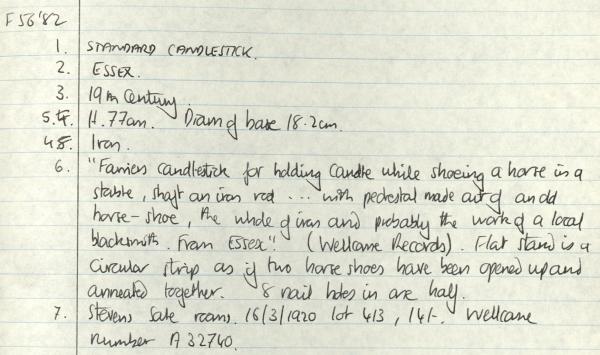 F56'82
1. STANDARD CANDLESTICK.
2. ESSEX.
3. 19th Century.
5. H. 77cm. Diam of base 18.2cm.
4. Iron.
6. "Farriers candlestick for holding candle while shoeing a horse in a
stable, shaft an iron rod ... with pedestal made out of an old
horse-shoe, the whole of iron and probably the work of a local
blacksmith. From ESSEX". (Wellcome Records). Flat stand is a
circular strip as if two horse shoes have been opened up and
annealed together. 8 nail holes in one half.
7. Stevens Sale rooms. 16/3/1920 lot 413, 14/-. Wellcome
number A 32740.